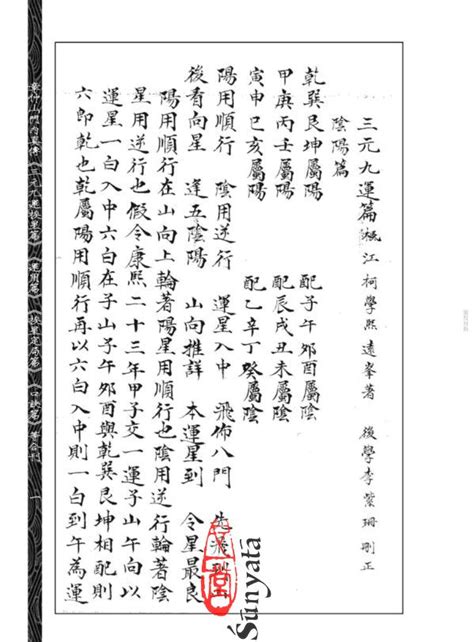 三元九運篇 楓江柯學熙遠峯著 後學李紫珊刪正
陰陽篇
乾巽艮坤屬陽 配子午卯酉屬陰
甲庚丙壬屬陽 配辰戌丑未屬陰
寅申巳亥屬陽 配乙辛丁癸屬陰
陽用順行 陰用逆行 運星入中 飛佈八門 先飛到
後看向星 逢五陰陽 山向推詳 本運星到 令星最良
陽用順行在山向上輪著陽星用順行也陰用逆行輪著陰
星用逆行也假令康熙二十三年甲子交一運子山午向以
運星一白入中六白在子山子午卯酉與乾巽艮坤相配則
六即乾也乾屬陽用順行再以六白入中則一白到午為運
章仲山門內真傳《三元九運挨星篇》《運用篇》《挨星定局篇》《口訣篇》等合刊 一
Śūnyatā